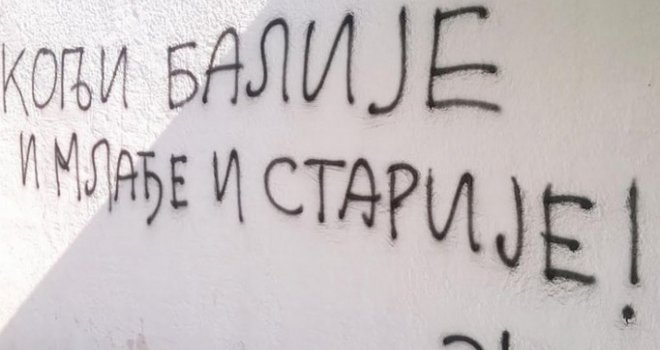 КОЉИ БАЛИЈЕ
И МЛАЂЕ И СТАРИЈЕ!